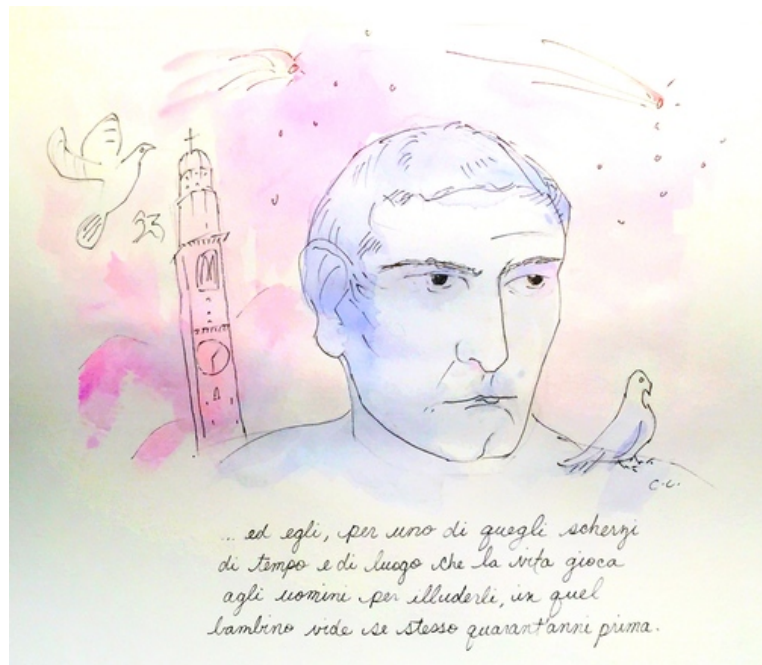 C.C.
... ed egli, per uno di quegli scherzi
di tempo e di luogo che la vita gioca
agli uomini per illuderli, in quel
bambino vide se stesso quarant'anni prima.